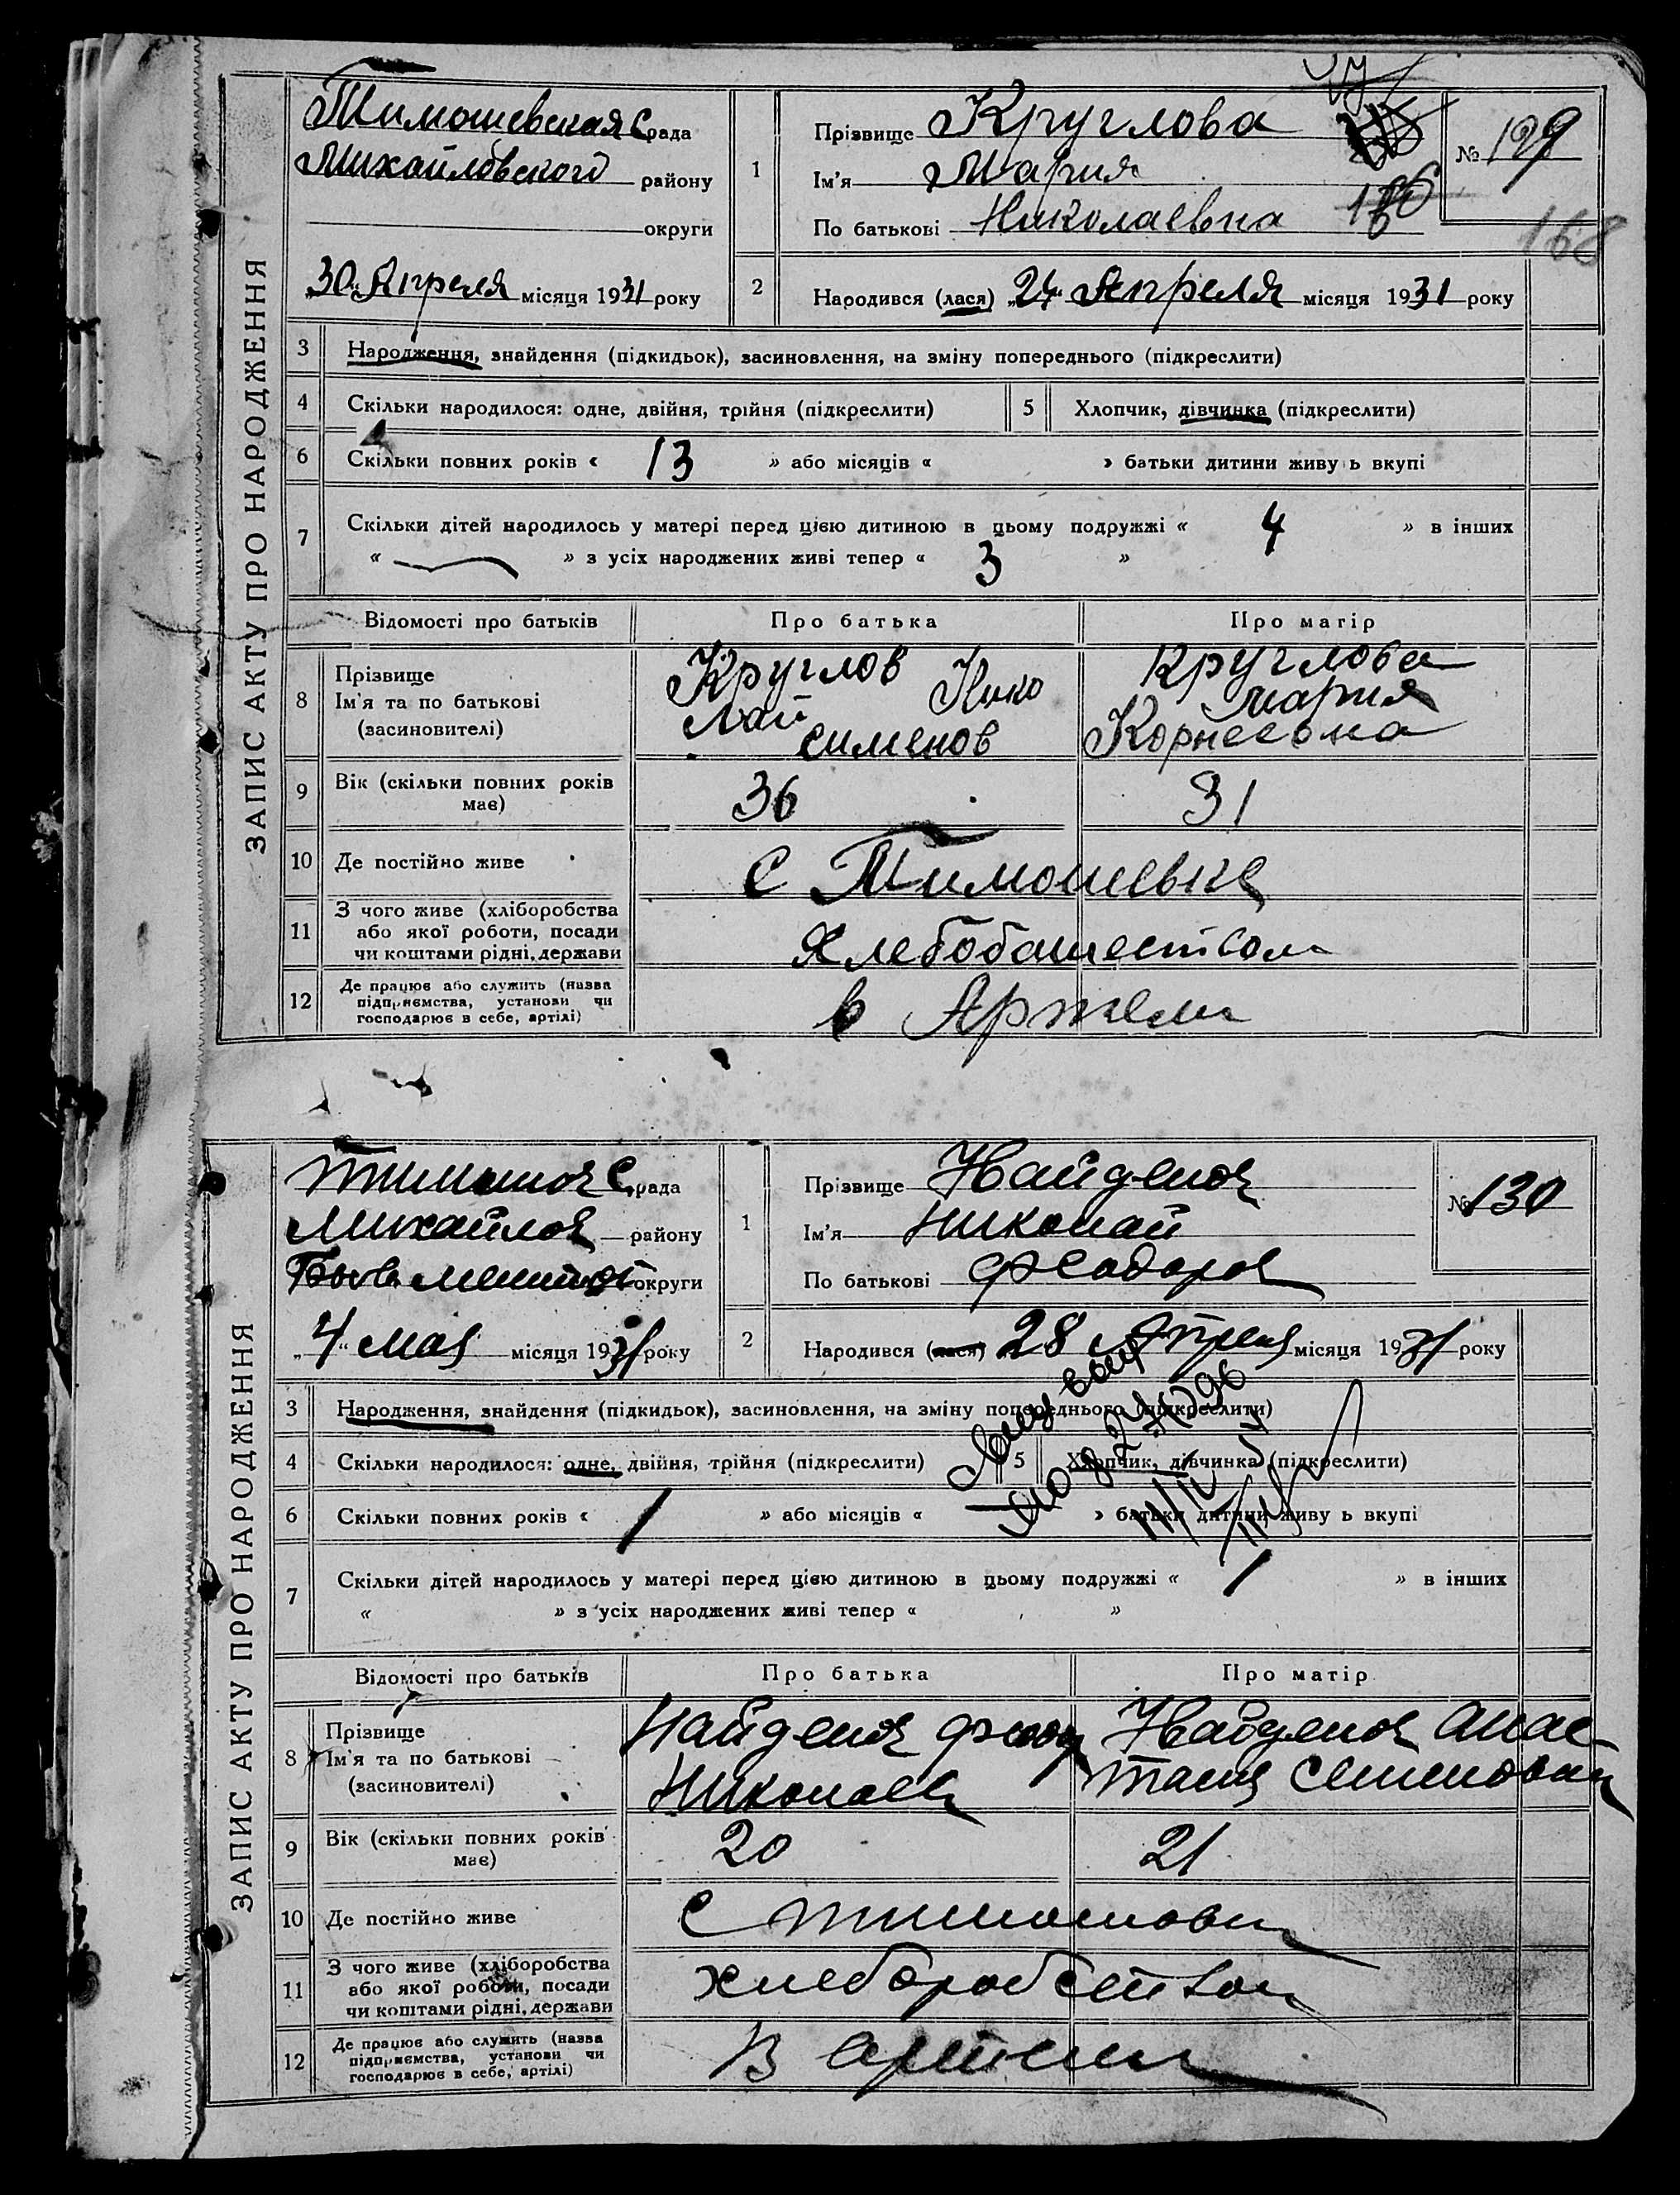 ЗАПИС АКТУ ПРО НАРОДЖЕННЯ
Тимошевская С рада
Михайловского району
округи
„30“ Апреля місяця 1931 року
1
Прізвище Круглова
Ім'я Мария
По батькові Николаевна
№ 129
166
168
2
Народився (лася) „24“ Апреля місяця 1931 року
3 Народження, знайдення (підкидьок), засиновлення, на зміну попереднього (підкреслити)
4 Скільки народилося: одне, двійня, трійня (підкреслити) 5 Хлопчик, дівчинка (підкреслити)
6 Скільки повних років « 13 » або місяців « » батьки дитини живу ь вкупі
7 Скільки дітей народилось у матері перед цією дитиною в цьому подружжі « 4 » в інших
« — » з усіх народжених живі тепер « 3 »
Відомості про батьків Про батька Про матір
8 Прізвище
Ім'я та по батькові
(засиновителі)
Круглов Нико
лай
Сименов
Круглова
Мария
Корнеевна
9 Вік (скільки повних років має) 36 31
10 Де постійно живе С Тимошевке
11 З чого живе (хліборобства
або якої роботи, посади
чи коштами рідні, держави
Хлебобашеством
12 Де працює або служить (назва
підприємства, установи чи
господарює в себе, артілі)
в Артели
ЗАПИС АКТУ ПРО НАРОДЖЕННЯ
Тимошов С. рада
Михайлов району
округи
„4“ мая місяця 1931 року
1
Прізвище Найденов
Ім'я Николай
По батькові Феодоров
№ 130
2
Народився (лася) 28 Апреля місяця 1931 року
3 Народження, знайдення (підкидьок), засиновлення, на зміну попереднього (підкреслити)
4 Скільки народилося: одне, двійня, трійня (підкреслити) 5 Хлопчик, дівчинка (підкреслити)
6 Скільки повних років « 1 » або місяців « » батьки дитини живу ь вкупі
7 Скільки дітей народилось у матері перед цією дитиною в цьому подружжі « 1 » в інших
« » з усіх народжених живі тепер « »
Відомості про батьків Про батька Про матір
8 Прізвище
Ім'я та по батькові
(засиновителі)
Найденов Феодор
Николаев
Найденов Анас
тасия Семеновна
9 Вік (скільки повних років має) 20 21
10 Де постійно живе С Тимошовки
11 З чого живе (хліборобства
або якої роботи, посади
чи коштами рідні, держави
хлеборобством
12 Де працює або служить (назва
підприємства, установи чи
господарює в себе, артілі)
В артели